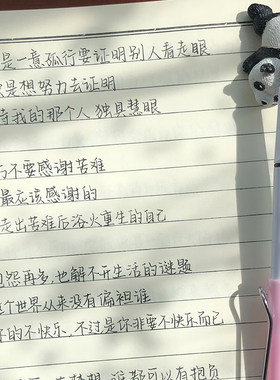 是一意孤行要证明别人看走眼
是想努力去证明
待我的那个人 独具慧眼
不要感谢苦难
最应该感谢的
走出苦难后浴火重生的自己
怨再多,也解不开生活的谜题
个世界从来没有偏袒谁
的不快乐,不过是你非要不快乐而已
谁都可以有抱负